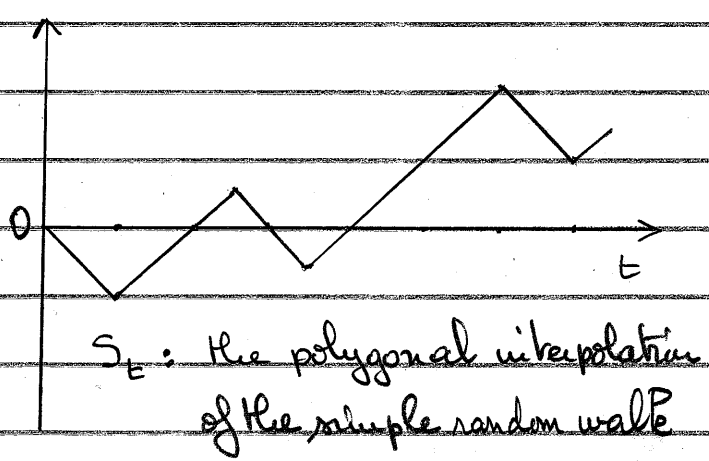 0
t
S_t : the polygonal interpolation
of the simple random walk